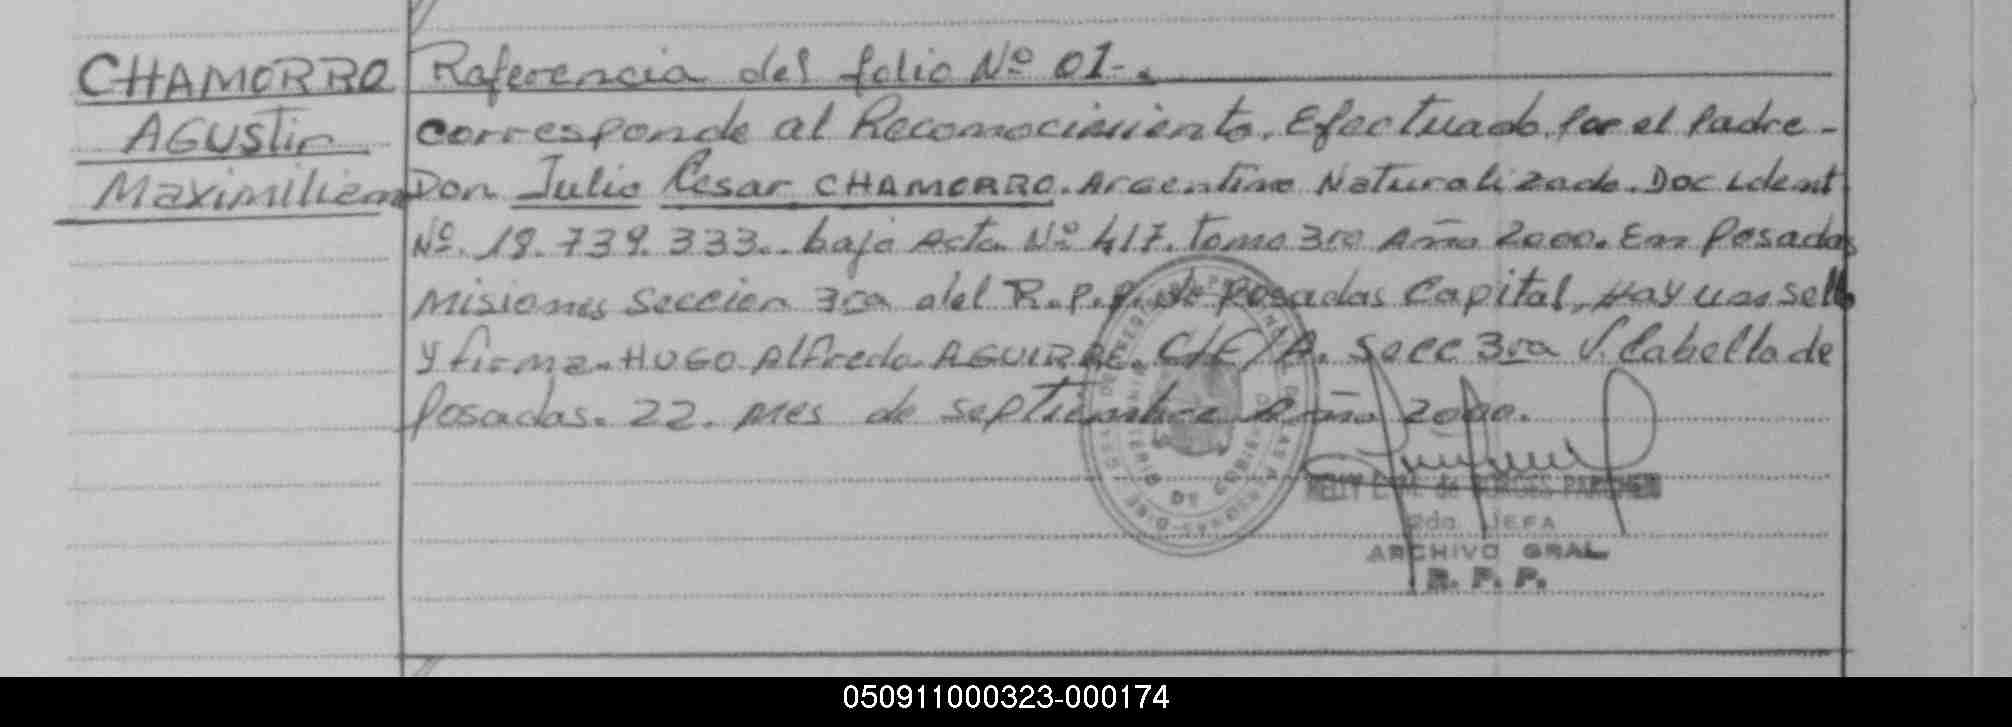 CHAMORRO
AGUSTIN
Maximiliano
Referencia del folio Nº 01-.
Corresponde al Reconocimiento. Efectuado por el Padre-
Don Julio Cesar CHAMORRO. Argentino Naturalizado. Doc Ident
Nº. 18.739.333.. bajo Acta Nº 417. Tomo 3ro Año 2000. En Posadas
Misiones Seccion 3ra del R.P.P. de Posadas Capital, Hay un sello
y firma. HUGO Alfredo AGUIRRE. C/E/A. Secc 3ra V. Cabello de
Posadas. 22. mes de Septiembre Año 2000.
2do. JEFA
ARCHIVO GRAL
R. P. P.
050911000323-000174